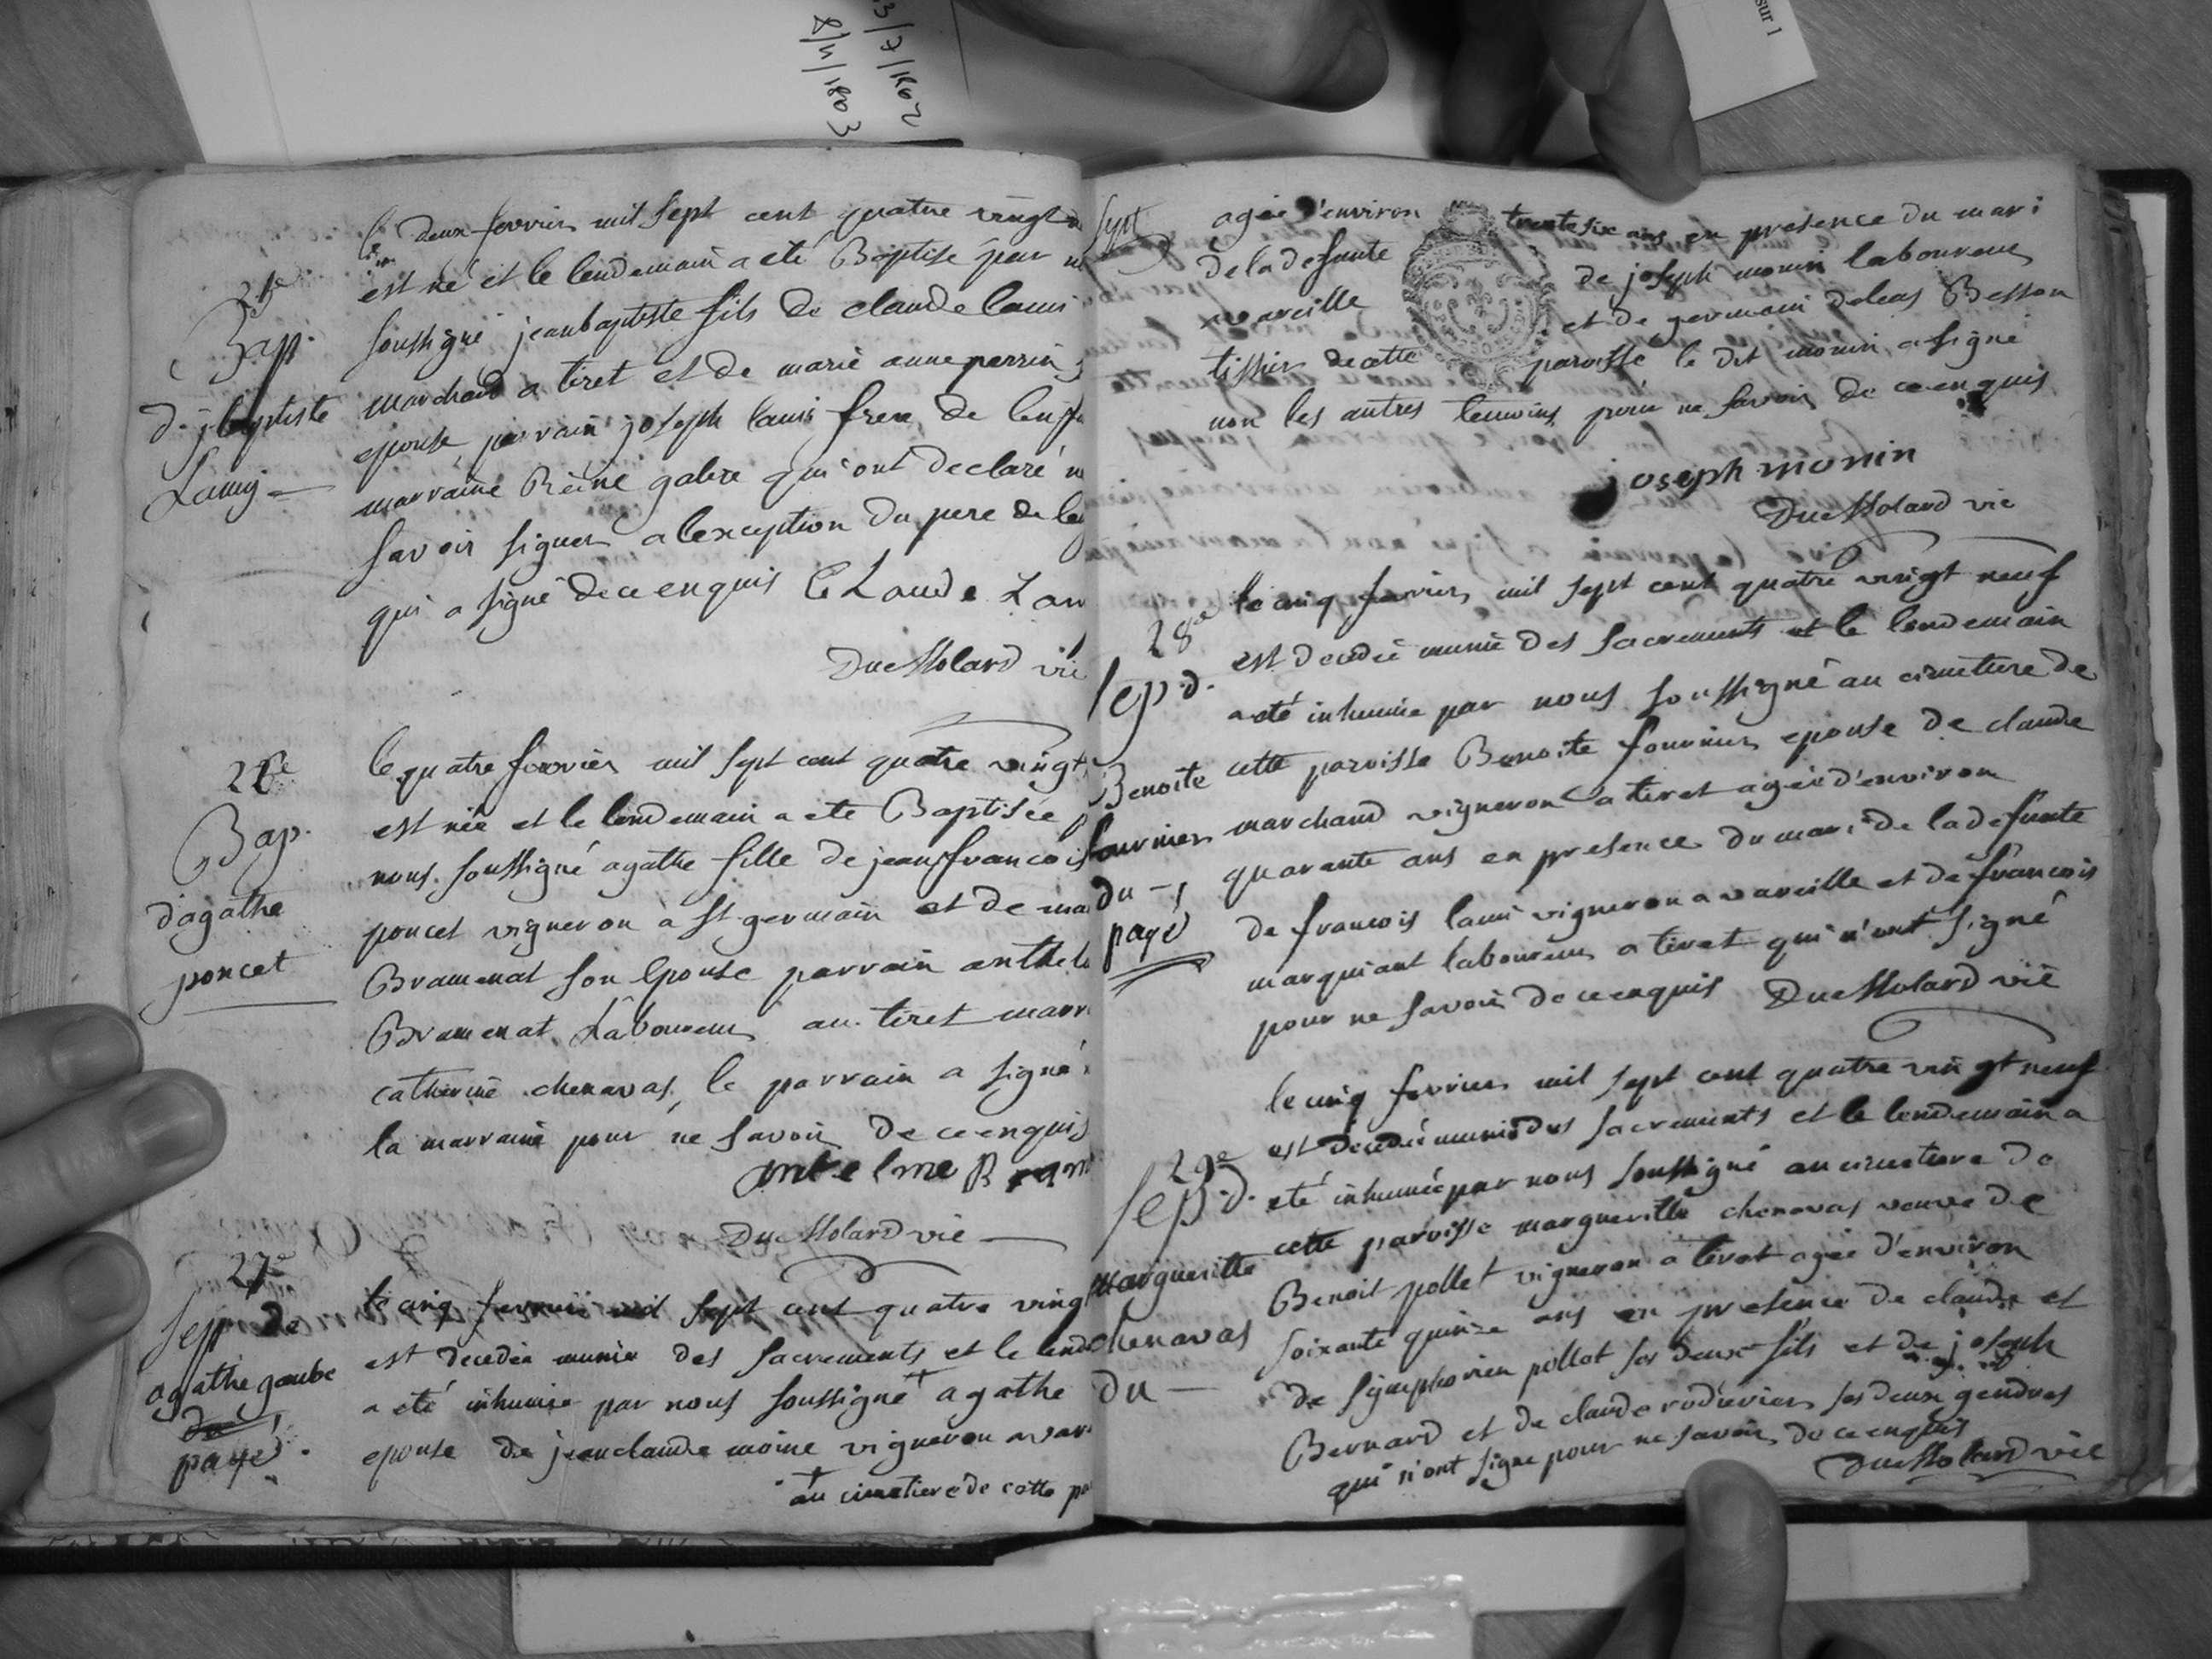 3/7/1802
8/4/1803
sur 1
25e
Bap.
d. j baptiste
Lamy
le deux fevrier mil sept cent quatre vingt
est né et le lendemain a eté Baptisé par
soussigné jeanbaptiste fils de claude lami
marchand a tiret et de marie anne perrin
epouse, parrain joseph lami frere de
marraine Reine galere qui ont declaré
savoir signer a lexception du pere de
qui a signé de ce enquis Claude Lam
Ducmolard vic
26e
Bap.
d'agathe
poncet
le quatre fevrier mil sept cent quatre vingt
est née et le lendemain a ete Baptisée
nous soussigné agathe fille de jeanfrancois
poncet vigneron à st germain et de ma
Bramenat son Epouse parrain anthel
Bramenat Laboureur au tiret marr
catherine chenavas, le parrain a signé
la marraine pour ne savoir de ce enquis
antelme Bram
Ducmolard vic
27e
sep de
agathe goube
du
payé
le cinq fevrier mil sept cent quatre ving
est decedée munie des sacrements et le lend
a eté inhumée par nous soussigné + agathe
epouse de jeanclaude moine vigneron a var
+ au cimetiere de cette pa
sept
agée d'environ trente six ans en presence du mari
de la defunte de joseph monin laboureur
a vareille et de germain Besson
tissier de cette paroisse le dit monin a signé
non les autres temoins pour ne savoir de ce enquis
joseph monin
Ducmolard vic
28e
sep. d.
Benoite
fournier
du
payé
le cinq fevrier mil sept cent quatre vingt neuf
est decedée munie des sacrements et le lendemain
a eté inhumée par nous soussigné au cimetiere de
cette paroisse Benoite fournier epouse de claude
marchand vigneron a tiret agée d'environ
quarante ans en presence du mari de la defunte
de francois lami vigneron a vareille et de francois
marquiant laboureur a tiret qui n'ont signé
pour ne savoir de ce enquis Ducmolard vic
29e
sep. d.
margueritte
chenavas
du
le cinq fevrier mil sept cent quatre vingt neuf
est decedée munie des sacrements et le lendemain a
eté inhumée par nous soussigné au cimetiere de
cette paroisse margueritte chenavas veuve de
Benoit pollet vigneron a tiret agée d'environ
soixante quinze ans en presence de claude et
de simphorien pollet ses deux fils et de joseph
Bernard et de claude ses deux gendres
qui n'ont signe pour ne savoir de ce enquis
Ducmolard vic